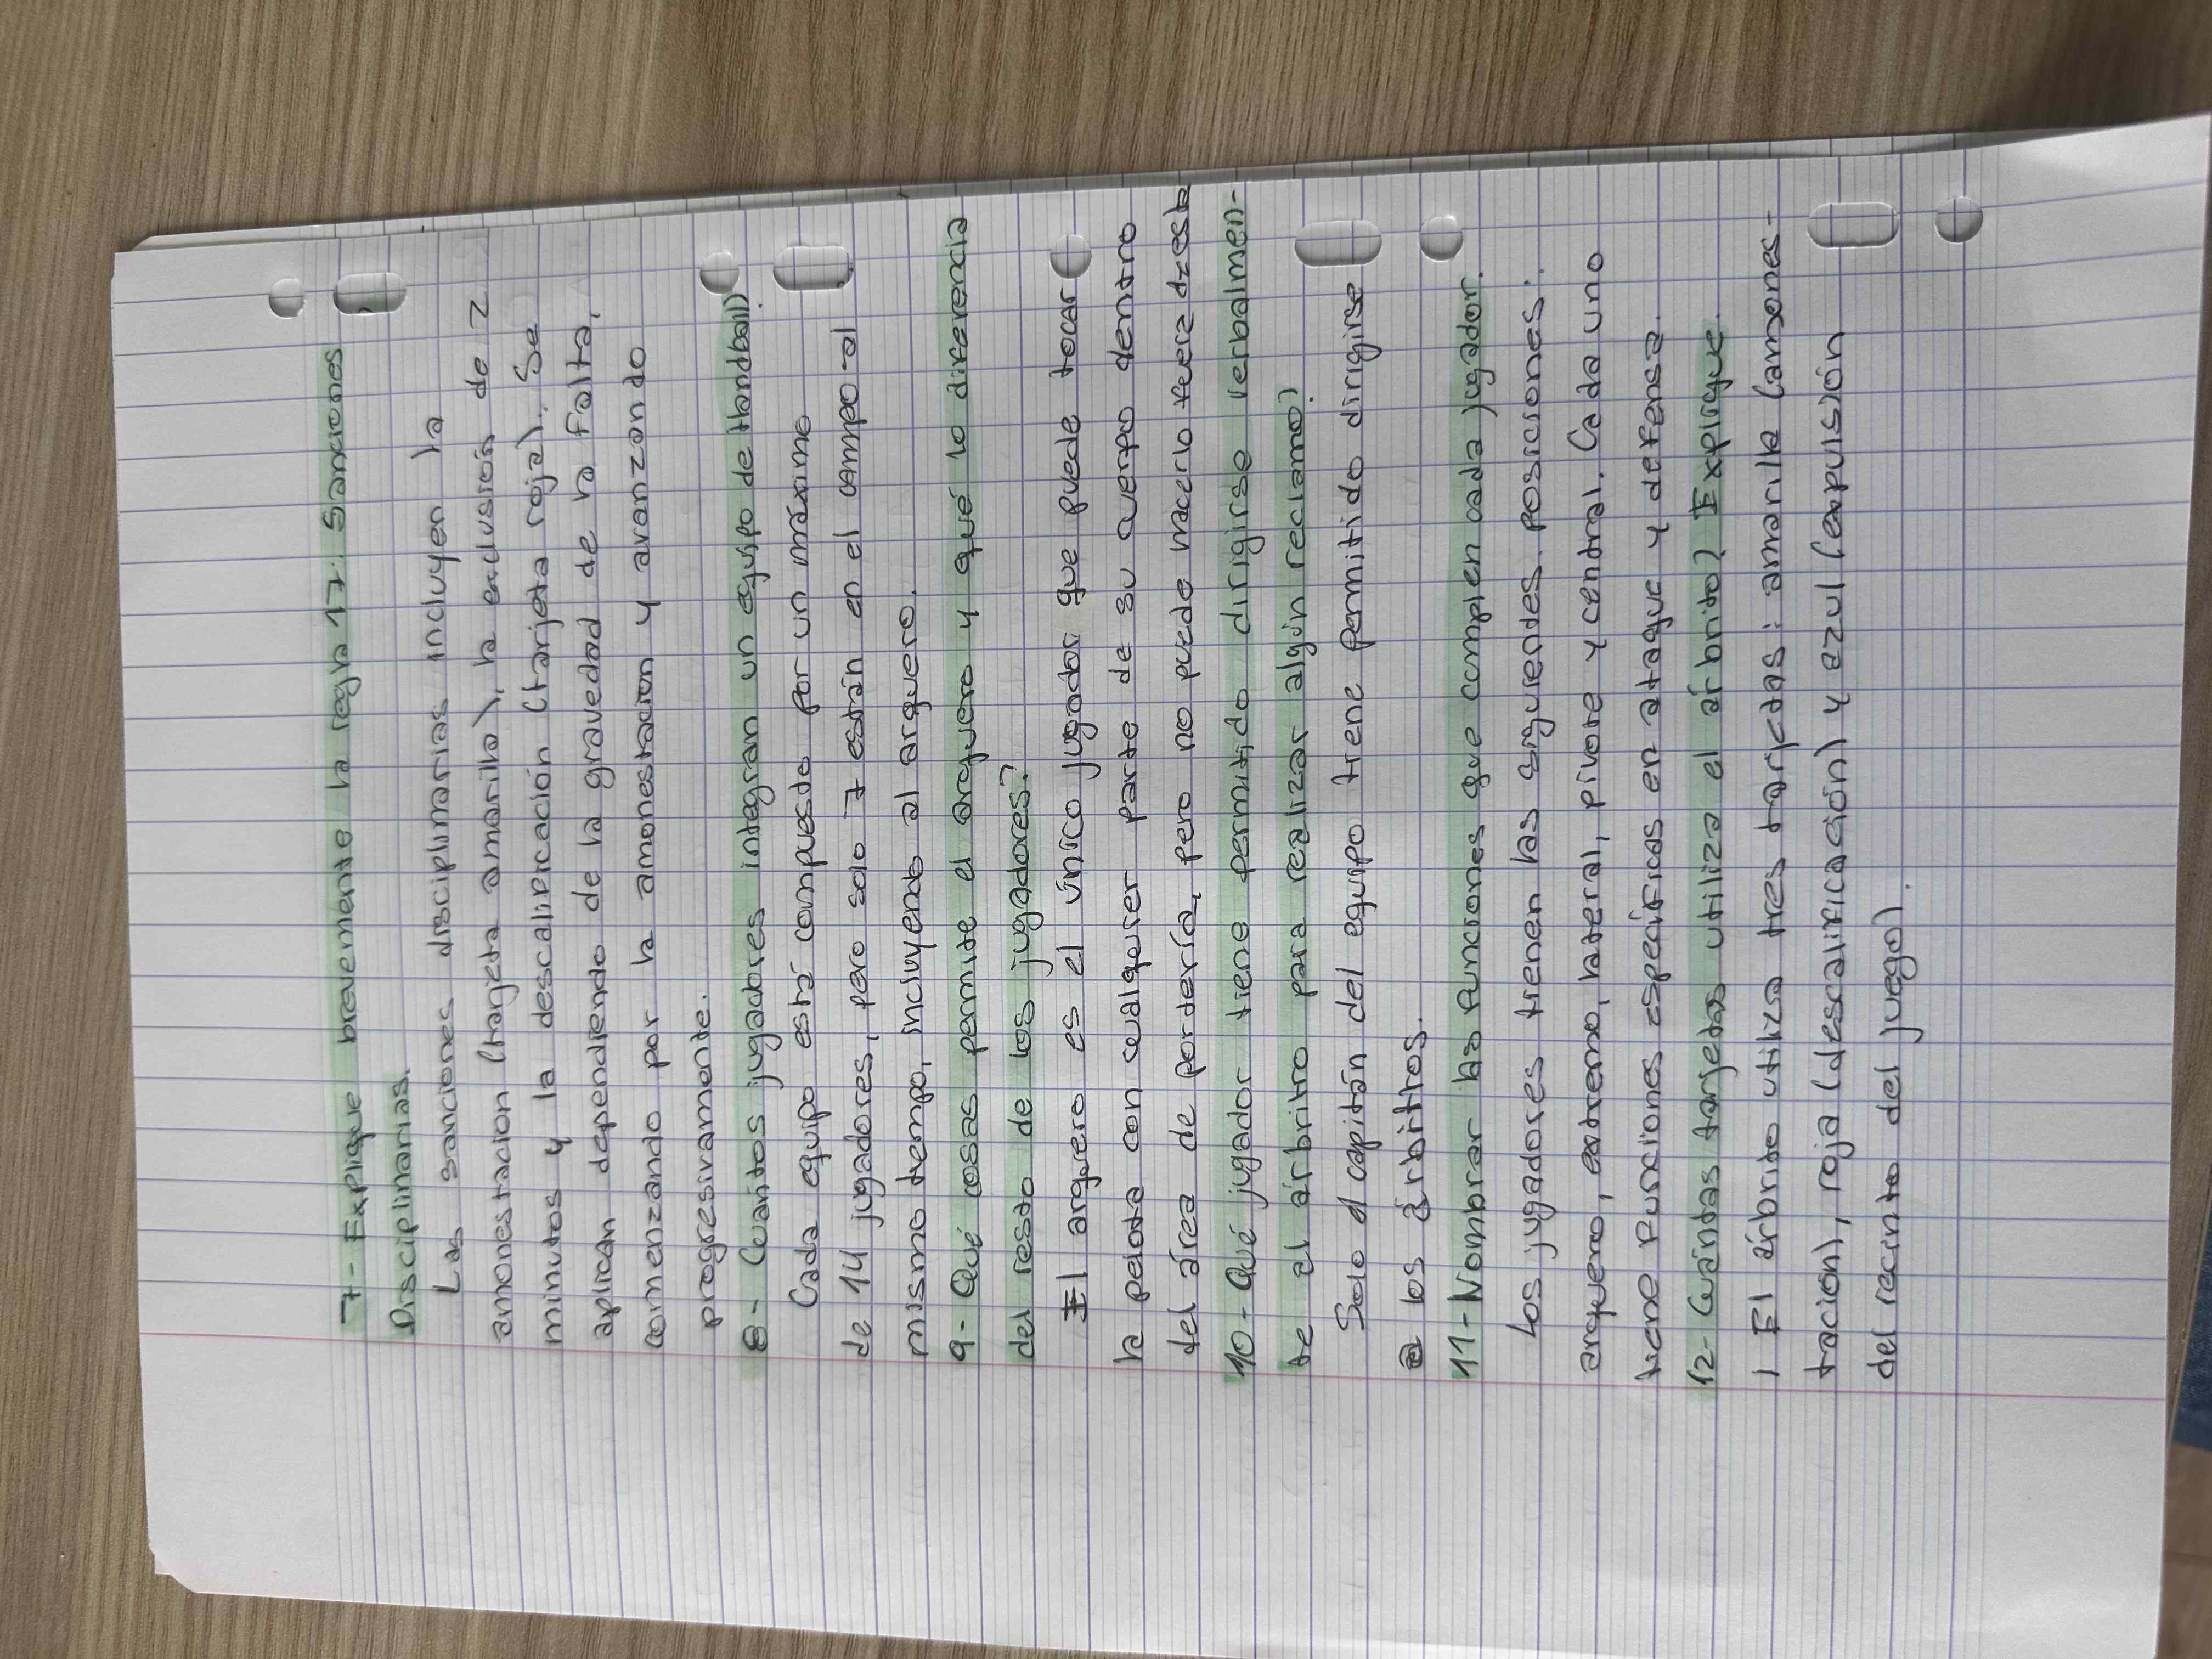 7- Explique brevemente la regla 17: Sanciones
Disciplinarias.
Las sanciones disciplinarias incluyen la
amonestacion (tarjeta amarilla), la exclusión de 2
minutos y la descalificación (tarjeta roja). Se
aplican dependiendo de la gravedad de la falta,
comenzando por la amonestracion y avanzando
progresivamente.
8- Cuántos jugadores integran un equipo de Handball?
Cada equipo está compuesto por un máximo
de 14 jugadores, pero solo 7 están en el campo al
mismo tiempo, incluyendo al arquero.
9- Qué cosas permite el arquero y qué lo diferencia
del resto de los jugadores?
El arquero es el único jugador que puede tocar
la pelota con cualquier parte de su cuerpo dentro
del área de portería, pero no puede hacerlo fuera de esta
10- Qué jugador tiene permitido dirigirse verbalmen-
te al árbritro para realizar algún reclamo?
Solo el capitán del equipo tiene permitido dirigirse
a los árbitros.
11- Nombrar las funciones que cumplen cada jugador.
Los jugadores tienen las siguientes posiciones:
arquero, extremo, lateral, pivote y central. Cada uno
tiene funciones específicas en ataque y defensa.
12- Cuántas tarjetas utiliza el árbrito? Explique.
El árbrito utiliza tres tarjetas: amarilla (amones-
tacion), roja (descalificación) y azul (expulsión
del recinto del juego).